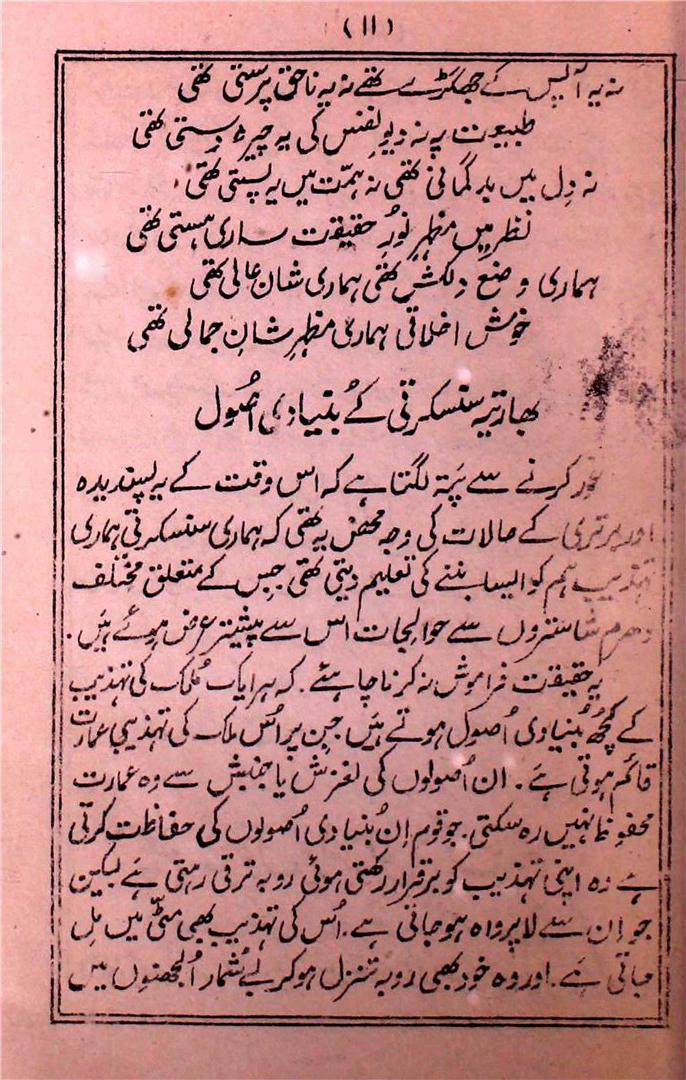 (۱۱)
نہ یہ آپس کے جھگڑے تھے نہ یہ ناحق پرستی تھی
طبیعت پہ نہ دیوِ نفس کی یہ چیرہ دستی تھی
نہ دِل میں بدگمانی تھی نہ ہمّت میں یہ پستی تھی
نظر میں مظہرِ نُورِ حقیقت ساری ہستی تھی
ہماری وضع دلکش تھی ہماری شان عالی تھی
خوش اخلاقی ہماری مظہرِ شانِ جمالی تھی
بھارتیہ سنسکرتی کے بُنیادی اصُول
غور کرنے سے پتہ لگتا ہے کہ اس وقت کے یہ پسندیدہ
اور برتری کے حالات کی وجہ محض یہ تھی کہ ہماری سنسکرتی ہماری
تہذیب ہم کو ایسا بننے کی تعلیم دیتی تھی جس کے متعلق مختلف
دھرم شاستروں سے حوالجات اس سے پیشتر عرض ہوئے ہیں.
یہ حقیقت فراموش نہ کرنا چاہئے. کہ ہر ایک مُلک کی تہذیب
کے کچھ بُنیادی اُصول ہوتے ہیں جن پر اُس ملک کی تہذیبی عمارت
قائم ہوتی ہے. ان اُصولوں کی لغزش یا جنبش سے وہ عمارت
محفوظ نہیں رہ سکتی. جو قوم اِن بُنیادی اُصولوں کی حفاظت کرتی
ہے وہ اپنی تہذیب کو برقرار رکھتی ہوئی روبہ ترقی رہتی ہے لیکن
جو اِن سے لاپرواہ ہو جاتی ہے. اُس کی تہذیب بھی مٹّی میں مِل
جاتی ہے. اور وہ خود بھی روبہ تنزل ہو کر بے شُمار اُلجھنوں میں